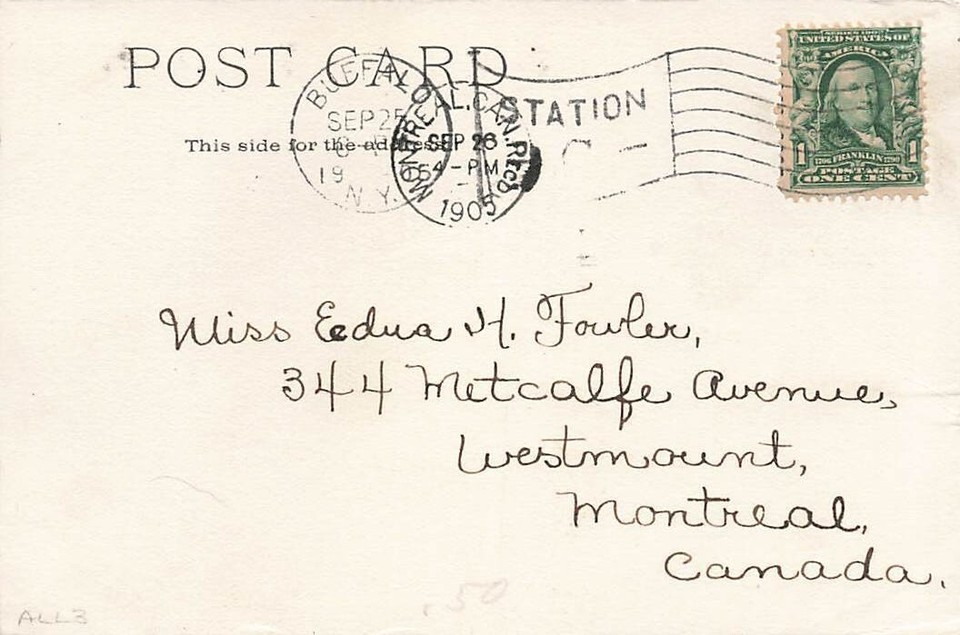 POST CARD
This side for the address
BUFFALO
SEP 25
19
N.Y.
MONTREAL, CAN. REC'D
SEP 26
4-PM
1905
STATION
C
SERIES 1902
UNITED STATES OF
AMERICA
1 1706 FRANKLIN 1790 1
POSTAGE
ONE CENT
Miss Eedna H. Fowler,
344 Metcalfe Avenue,
Westmount,
Montreal,
Canada.
.50
ALL3